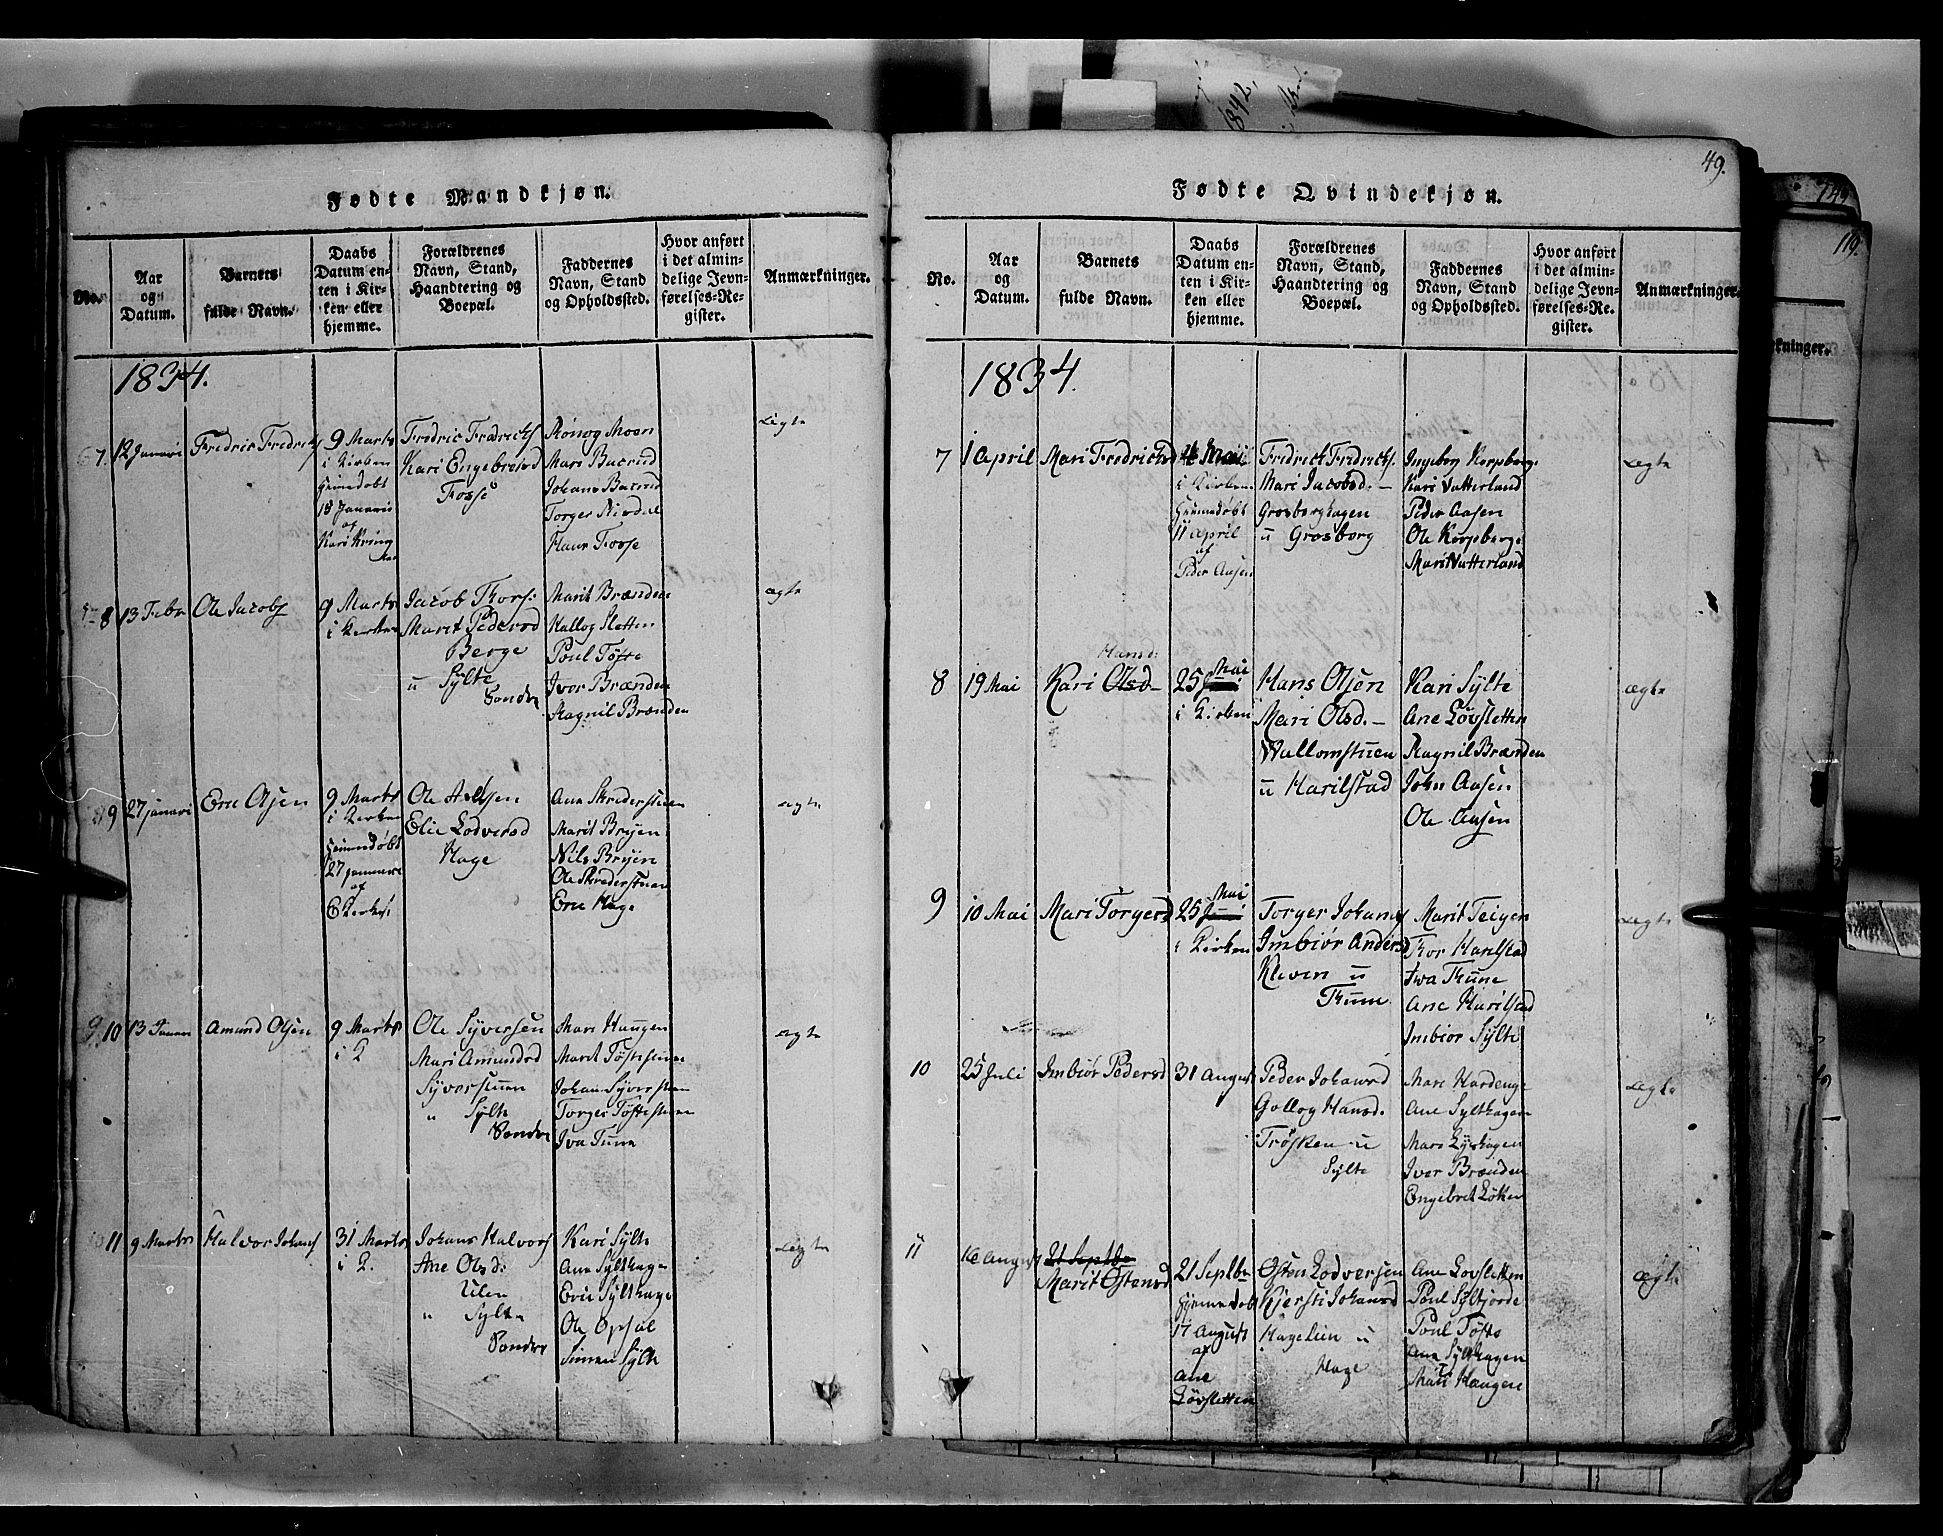 1842.
49.
119.
Fødte Mandkjøn.
No.
Aar og Datum.
Barnets fulde Navn.
Daabs Datum enten i Kirken eller hjemme.
Forældrenes Navn, Stand, Haandtering og Boepæl.
Faddernes Navn, Stand og Opholdssted.
Hvor anført i det almindelige Jevnførelses-Register.
Anmærkninger.
1834.
7. 12 Januari
Fredric Fredrichs
9 Marts
i Kirken
Hiemedøbt
18 Januari
af
Kari Kring
Fredric Fredrichs
Kari Engebretsd
Fosse
Rönog Moen
Mari Bucrud
Johans Bucrud
Torger Nirdal
Hans Fosse
ægte
8 13 Febr
Ole Jacobs
9 Marts
i Kirken
Jacob Thors.
Marit Pedersd
Berge
u Sylte
Søndre
Marit Brænden
Kallog Sletten
Poul Tøfte
Iver Brænden
Ragnil Brænden
ægte
9 27 januari
Eric Olsen
9 Marts
i Kirken
Hiemedøbt
27 januari
af
E Kirkes.
Ole
Elie Lodversd
Hage
Ane Skrederstuen
Marit Bryen
Nils Bryen
Ole Skrederstuen
Eric Hage
ægte
10 13 Januar
Amund Olsen
9 Marts
i K
Ole Syversen
Mari Amundsd
Syverstuen
" Sylte
Søndre
Mari Haugen
Marit Tøftestuen
Johan Syverstuen
Torger Tøftestuen
Iva Tune
ægte
11 9 Marts
Halvor Johans
31 Marts
i K.
Johans Halvors
Ane Olsd:
Ulen
" Sylte
Søndre
Kari Sylte
Ane Sylthage
Eric Sylthage
Ole Opsal
Simen Sylte
ægte
Fødte Qvindekjøn.
No.
Aar og Datum.
Barnets fulde Navn.
Daabs Datum enten i Kirken eller hjemme.
Forældrenes Navn, Stand, Haandtering og Boepæl.
Faddernes Navn, Stand og Opholdssted.
Hvor anført i det almindelige Jevnførelses-Register.
Anmærkninger.
1834.
7 1 April
Mari Fredrichsd
Maii
i Kirken
Hiemedøbt
11 April
af
Peder Aasen
Fredrich Fredrichs.
Mari Jacobsd. –
Grosborghagen
u Grosborg
Ingeborg Korpberge
Kari Vatterland
Peder Aasen
Ole Korpberge
Marit Vatterland
ægte
8 19 Mai
Hansd:
Kari Olsd –
25 Mai
i Kirken
Hans Olsen
Mari Olsd. –
Wallomstuen
u Harilstad
Kari Sylte
Ane Løvsletten
Ragnil Brænden
John Aasen
Ole Aasen
ægte
9 10 Mai
Mari Torgersd
25 Mai
i Kirken
Torger Johans
Imbiør Andersd
Kleven u
Thune
Marit Teigen
Thor Harilstad
Iwa Thune
Ane Harilstad
Imbiør Sylte
ægte
10 25 Juli
Imbiør Pedersd
31 August
Peder Johansd
Gollog Hansd.
Trøsken u
Sylte
Mari Hardenge
Ane Sylthagen
Iver Brænden
Engebret Løken
ægte
11 16 August
21 Septbr
Marit Østensd
21 Septbr
Hiemmedøbt
17 August
af
Ane
Løvsletten
Østen Lodversen
Kjersti Johansd
Hagelien u
Hage
Ane Løvsletten
Poul Syltjorde
Poul Tøfte
Ane Sylthagen
Mari Haugen
ægte